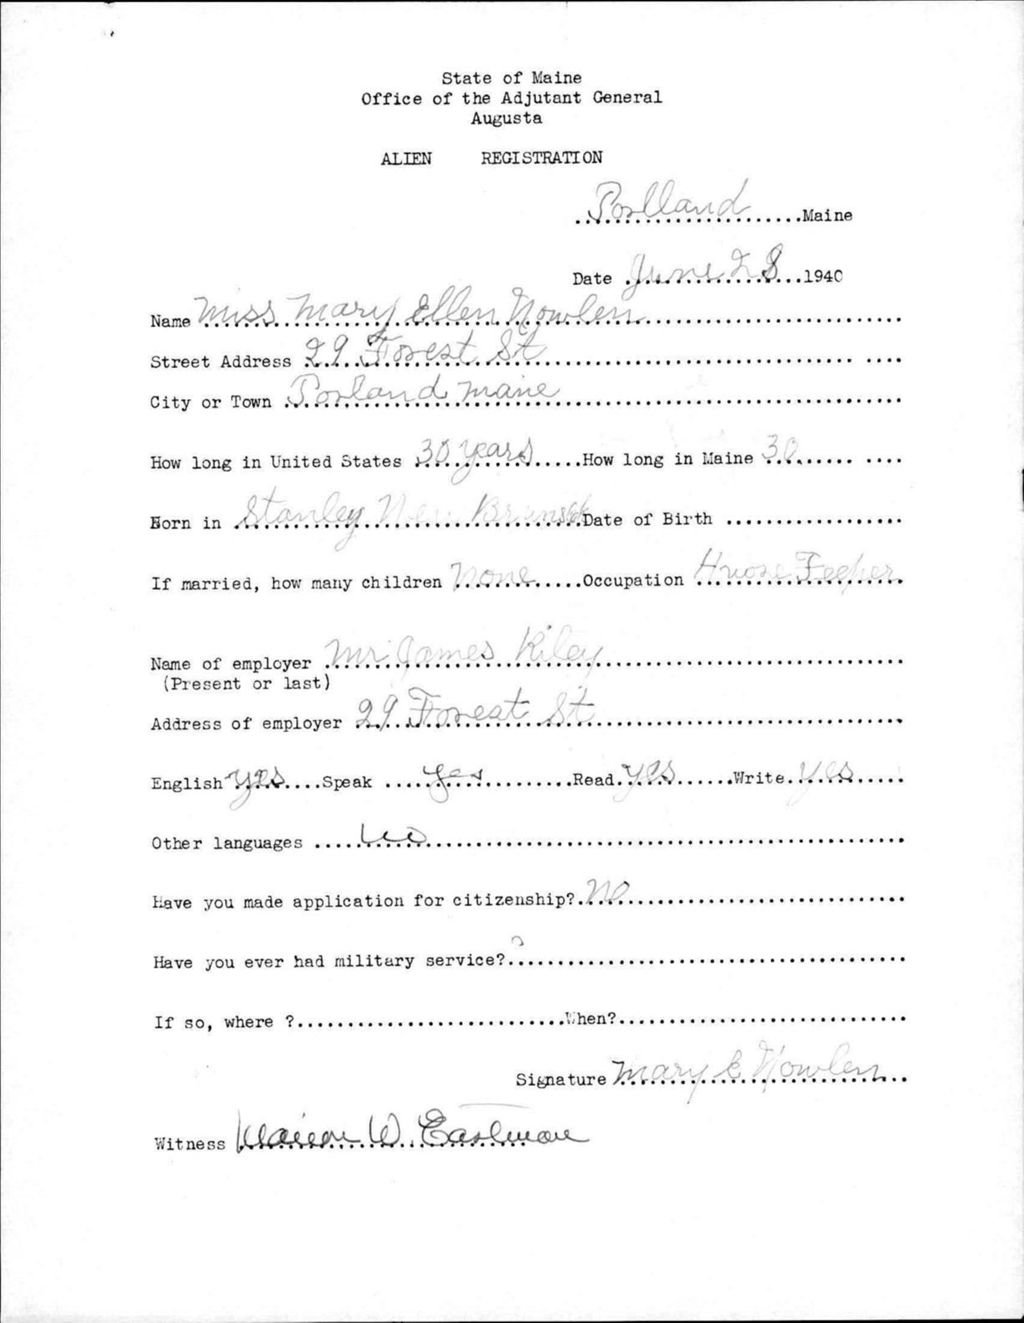 State of Maine
Office of the Adjutant General
Augusta
ALIEN REGISTRATION
Portland Maine
Date June 28 1940
Name Miss Mary Ellen Nowlen
Street Address 29 Forest St
City or Town Porland Maine
How long in United States 30 years How long in Maine 30
Born in Stanley New Date of Birth
If married, how many children None Occupation
Name of employer Mr James Kiley
(Present or last)
Address of employer 29 Forest St
English yes Speak yes Read yes Write yes
Other languages
Have you made application for citizenship? No
Have you ever had military service?
If so, where ? When?
Signature Mary E Nowlen
Witness W. Eastman